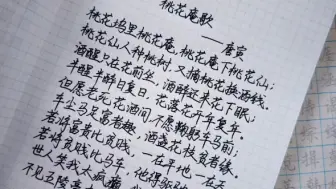 桃花庵歌
——唐寅
桃花坞里桃花庵,桃花庵下桃花仙;
桃花仙人种桃树,又摘桃花换酒钱。
酒醒只在花前坐,酒醉还来花下眠;
半醒半醉日复日,花落花开年复年。
但愿老死花酒间,不愿鞠躬车马前;
车尘马足富者趣,酒盏花枝贫者缘。
若将富贵比贫贱,一在平地一在天;
若将贫贱比车马,他得驱驰
世人笑我太疯癫,我
不见五陵豪